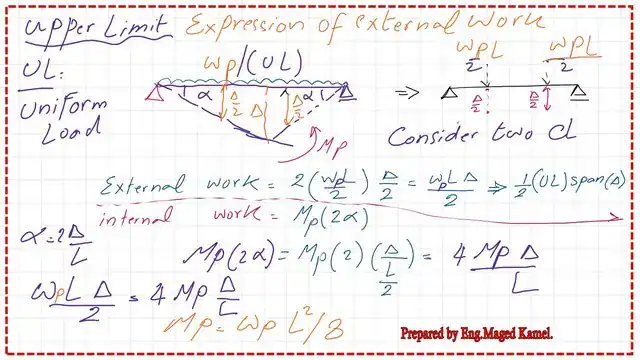 Upper Limit Expression of external work
UL: Uniform Load
Wp/(UL)
α Δ/2 Δ Δ/2 α
Mp
=>
WpL/2 WpL/2
Δ/2 Δ/2
Consider two CL
External work = 2(WpL/2) Δ/2 = WpLΔ/2 => 1/2(UL) span(Δ)
internal work = Mp(2α)
α = 2Δ/L
Mp(2α) = Mp(2)(Δ/(L/2)) = 4MpΔ/L
WpLΔ/2 = 4MpΔ/L
Mp = WpL²/8
Prepared by Eng.Maged Kamel.